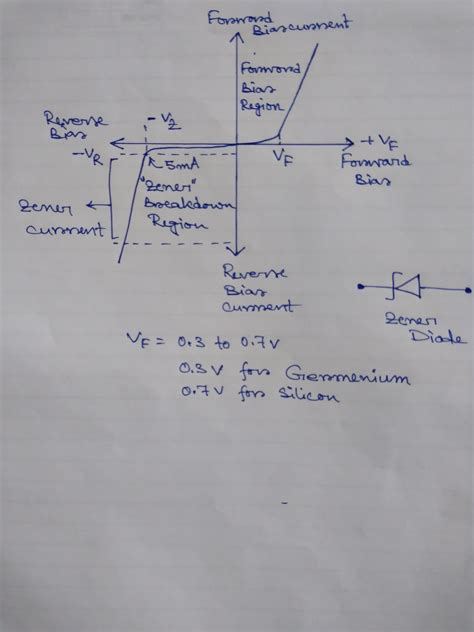 Forward
Bias current
Forward
Bias
Region
Reverse
Bias
- Vz
+ VF
- VR
5mA
VF
Forward
Bias
"Zener"
Breakdown
Region
Zener
Current
Reverse
Bias
Current
Zener
Diode
VF = 0.3 to 0.7V
0.3 V for Germenium
0.7 V for Silicon